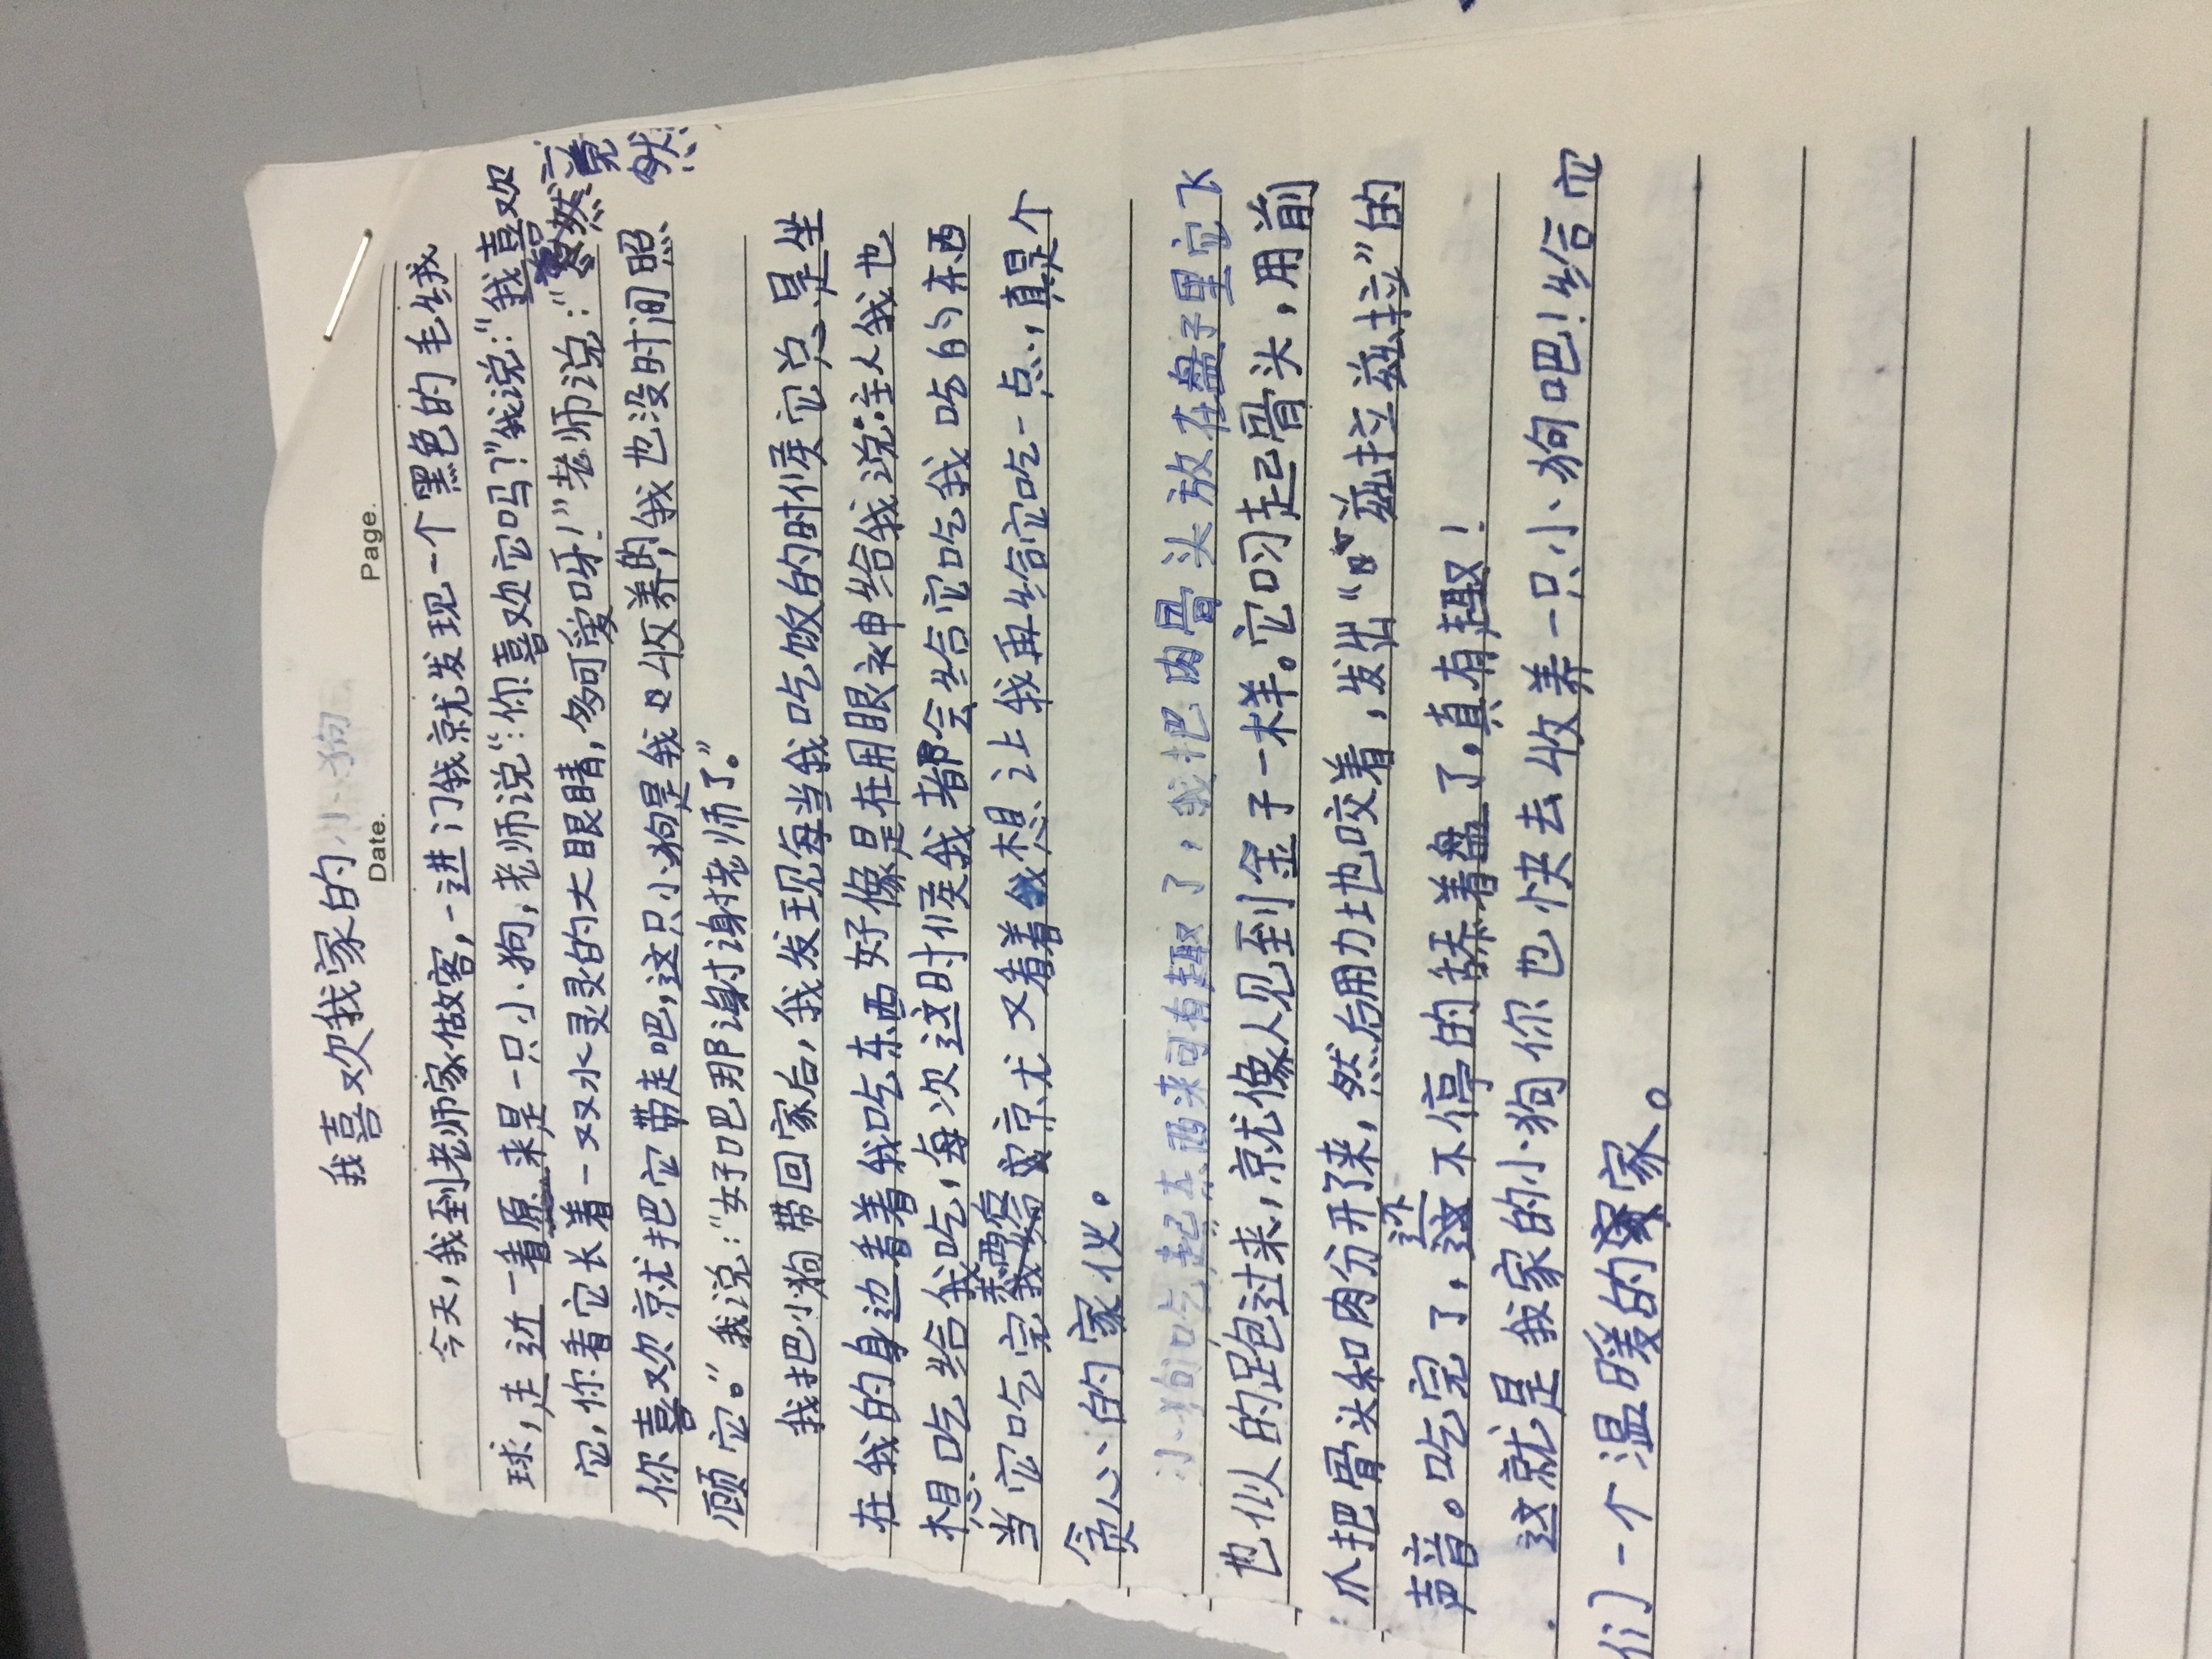 我喜欢我家的小狗
Date.
Page.
今天,我到老师家做客,一进门我就发现一个黑色的毛绒
球,走近一看原来是一只小狗,老师说:“你喜欢它吗?”我说:“我喜欢
它,你看它长着一双水灵灵的大眼睛,多可爱呀!”老师说:“竟然
你喜欢就把它带走吧,这只小狗是我只收养的,我也没时间照
顾它。”我说:“好吧那谢谢老师了。”
我把小狗带回家后,我发现每当我吃饭的时候它总是坐
在我的身边看着我吃东西好像是在用眼神给我说:主人我也
想吃给我吃,每次这时候我都会给它吃我吃的东西
当它吃完就又看着我想让我再给它吃一点,真是个
贪心的家伙。
小狗吃起东西来可有趣了,我把肉骨头放在盘子里它飞
也似的跑过来,就像人见到金子一样。它叼起骨头,用前
爪把骨头和肉分开来,然后用力地咬着,发出“兹拉兹拉”的
声音。吃完了,还不停的舔着盘了,真有趣!
这就是我家的小狗你也快去收养一只小狗吧!给它
们一个温暖的家。